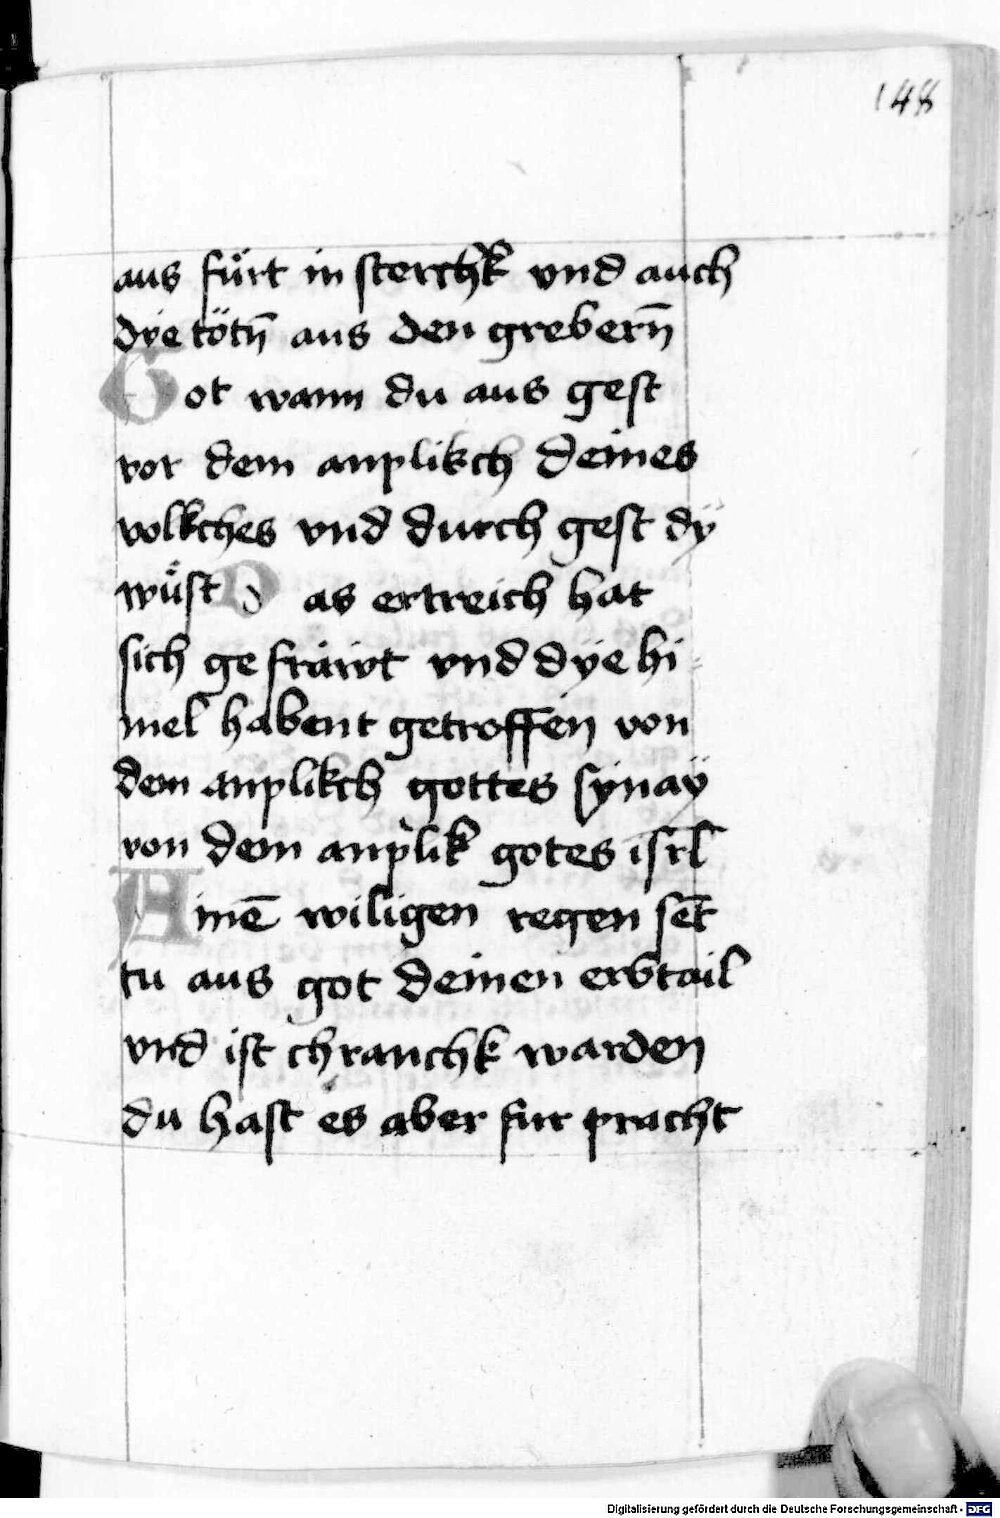 148
aus fürt in sterchk̄ vnd auch
dye tötn̄ aus den grebern̄
Got wann du aus gest
vor dem anplikch deines
volkches vnd durch gest dÿ
wüst Das ertreich hat
sich gefräwt vnd dye hi
mel habent getroffen von
dem anplikch gottes synaÿ
von dem anplik gotes isrl̄
Ainē wiligen regen sēt
tu aus got deinen erbtail
vnd ist chranchk warden
du hast es aber fur pracht
Digitalisierung gefördert durch die Deutsche Forschungsgemeinschaft - DFG